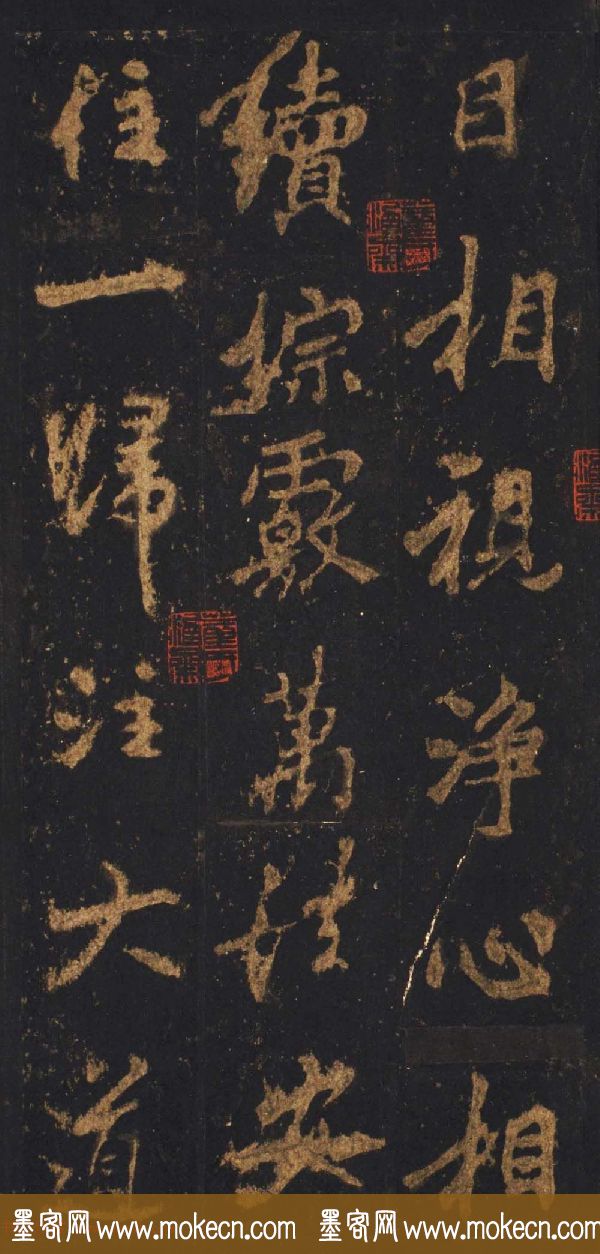 目相視淨心相
續綜覈萬安
住一歸注大道
墨客网 www.mokecn.com 墨客网 www.mokecn.com